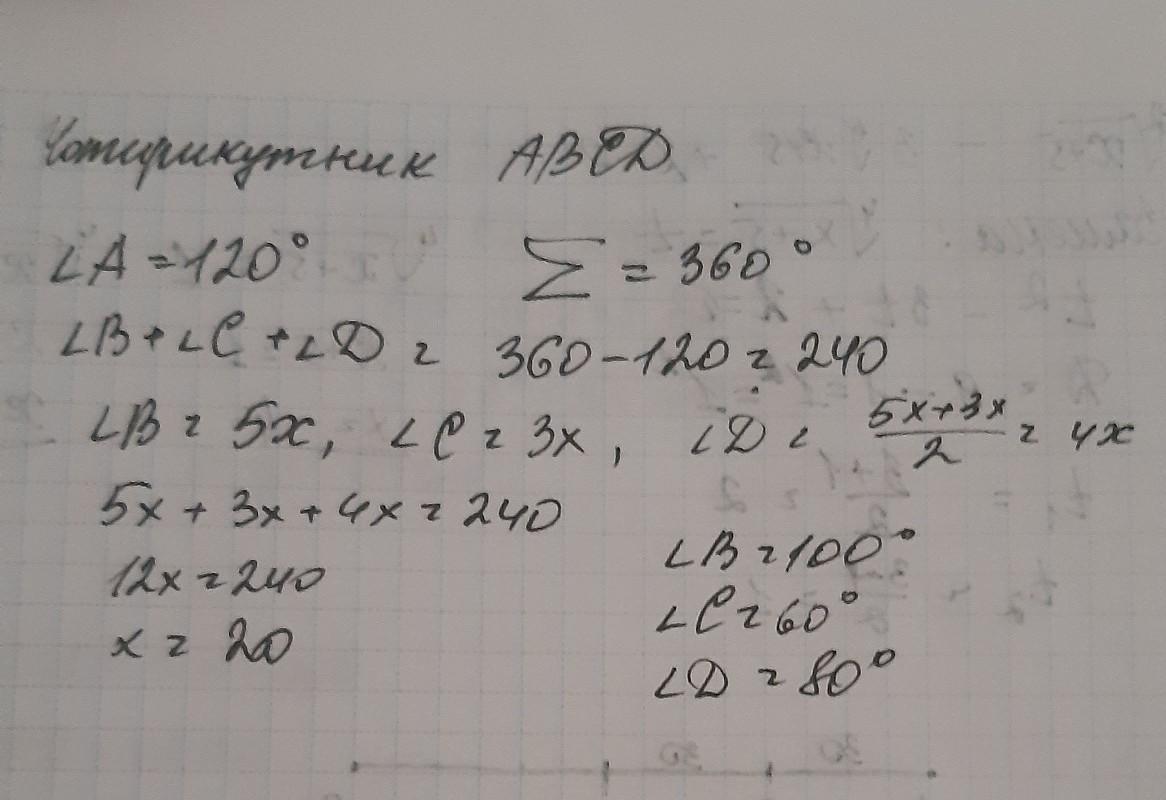 Чотирикутник ABCD
∠A = 120° ∑ = 360°
∠B + ∠C + ∠D = 360 - 120 = 240
∠B = 5x, ∠C = 3x, ∠D = (5x+3x)/2 = 4x
5x + 3x + 4x = 240
12x = 240
x = 20
∠B = 100°
∠C = 60°
∠D = 80°